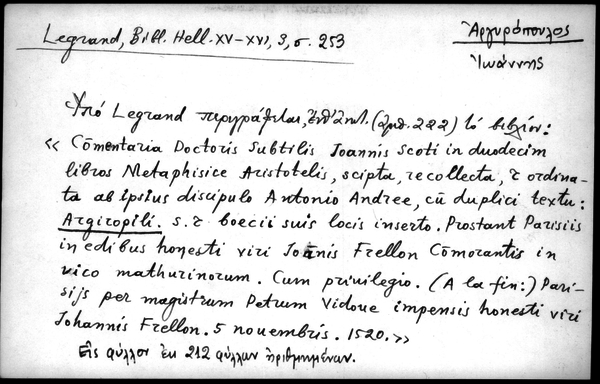 Legrand, Bibl. Hell. XV–XVI, 3, σ. 253
Ἀργυρόπουλος
Ἰωάννης
Ὑπό Legrand περιγράφεται, ἐνθ' ἀνωτ. (ἀριθ. 222) τό βιβλίον:
« Cōmentaria Doctoris Subtilis Joannis Scoti in duodecim
libros Metaphisice Aristotelis, scipta, recollecta, τ ordina-
ta ab ipsius discipulo Antonio Andree, cū duplici textu:
Argiropili. s. τ boecii suis locis inserto. Prostant Parisiis
in edibus honesti viri Joānis Frellon Cōmorantis in
vico mathurinorum. Cum privilegio. (A la fin:) Pari-
sijs per magistrum Petrum Vidoue impensis honesti viri
Johannis Frellon. 5 nouembris. 1520. »
Εἰς φύλλον ἐκ 212 φύλλων ἠριθμημένων.